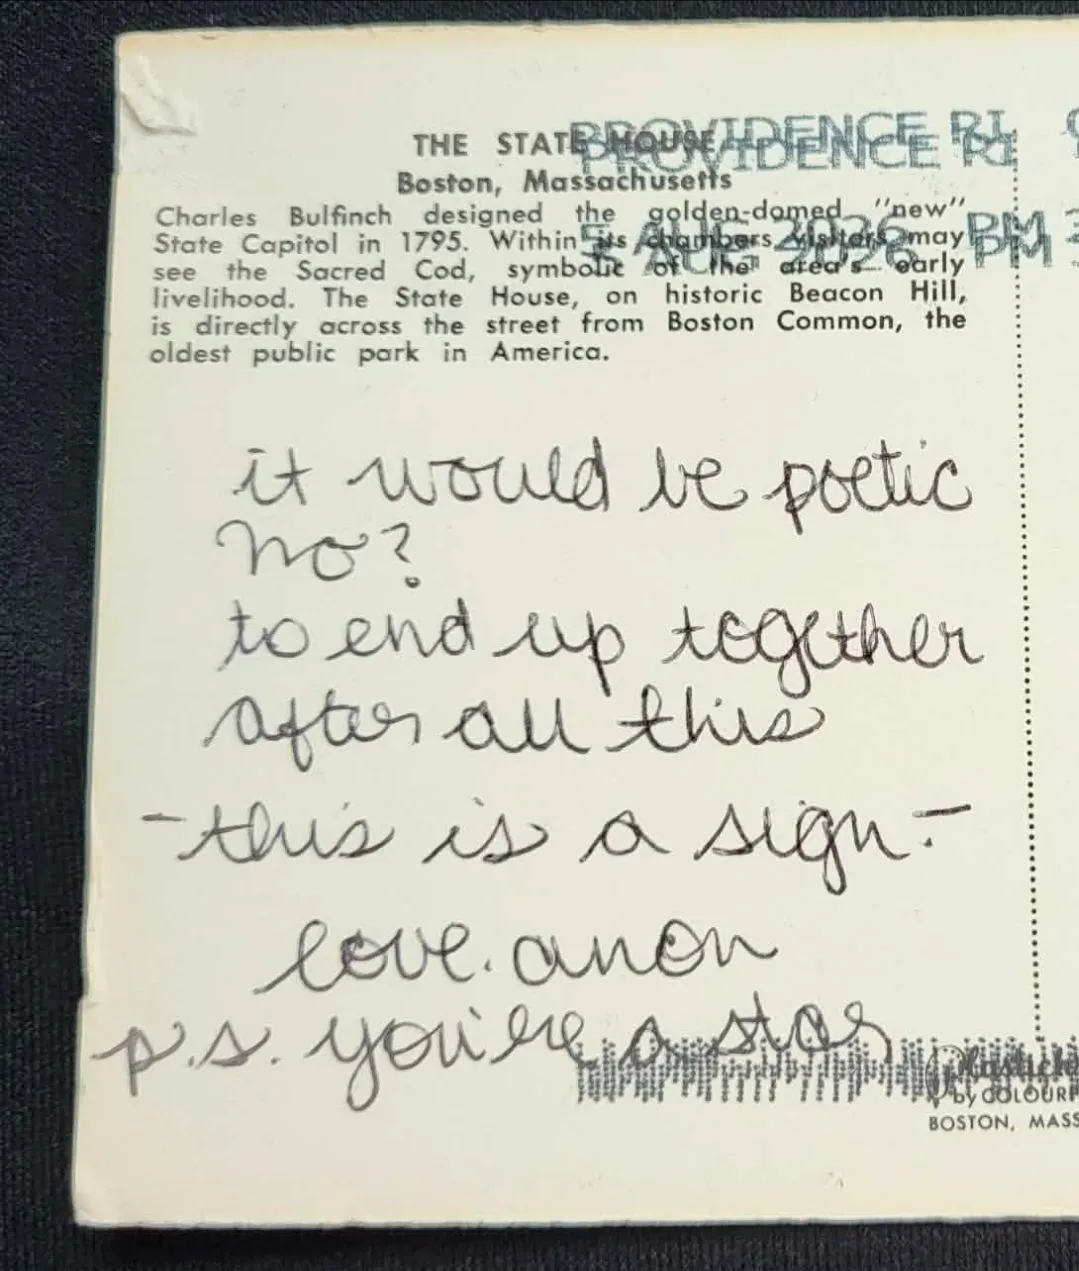 PROVIDENCE RI
5 AUG 2026 PM 3
THE STATE HOUSE
Boston, Massachusetts
Charles Bulfinch designed the golden-domed "new"
State Capitol in 1795. Within its chambers visitors may
see the Sacred Cod, symbolic of the area's early
livelihood. The State House, on historic Beacon Hill,
is directly across the street from Boston Common, the
oldest public park in America.
it would be poetic
no?
to end up together
after all this
-this is a sign.-
love. anon
p.s. you're a star
by COLOUR
BOSTON, MASS